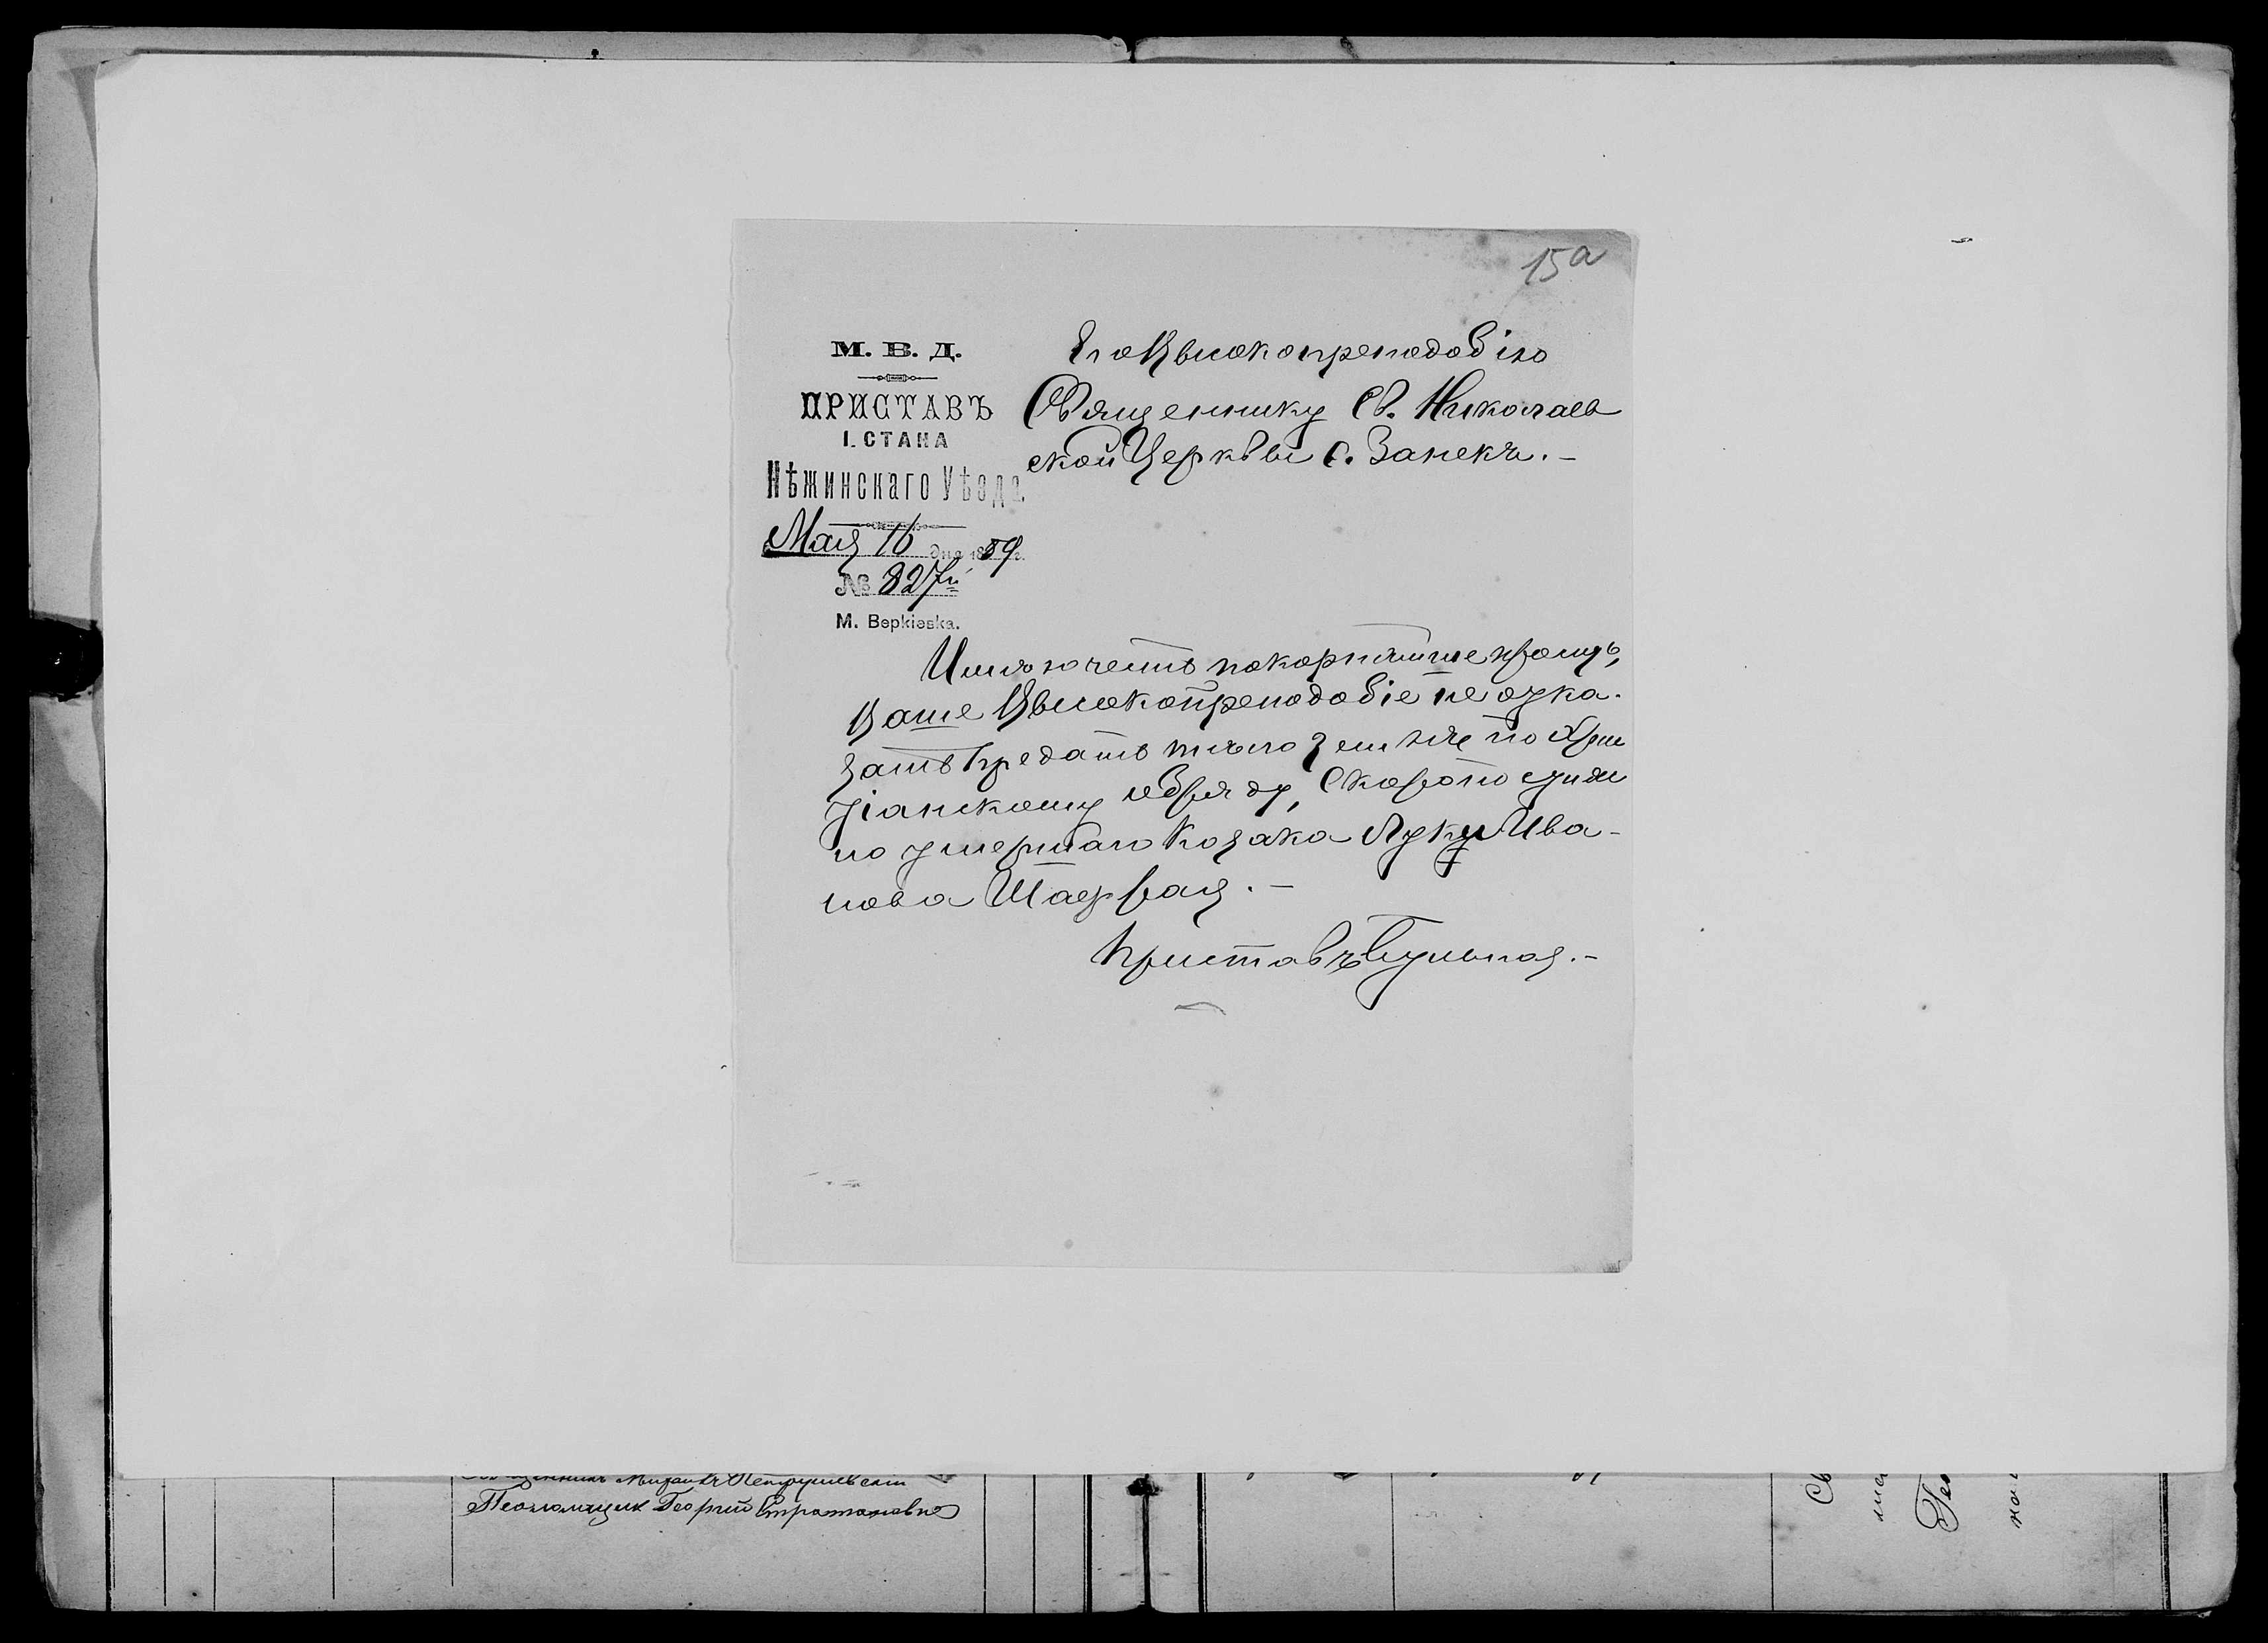 15а
М. В. Д.
ПРИСТАВЪ
I. СТАНА
Нѣжинскаго Уѣзда.
Мая 16 дня 1889 г.
№ 827й
М. Веркіевка.
Его Высокопреподобію
Священнику Св. Николаев
ской Церкви с. Занекъ.-
Имѣю честь покорнѣйше просить,
Ваше Высокопреподобіе не отка-
зать предать тѣло землѣ по Хри
тіанскому обряду, скоропостиж
но умершаго Козака Луку Ива-
нова Шаграя.-
Приставъ
Священникъ Михаилъ
Псаломщик Георгій Стратановичъ